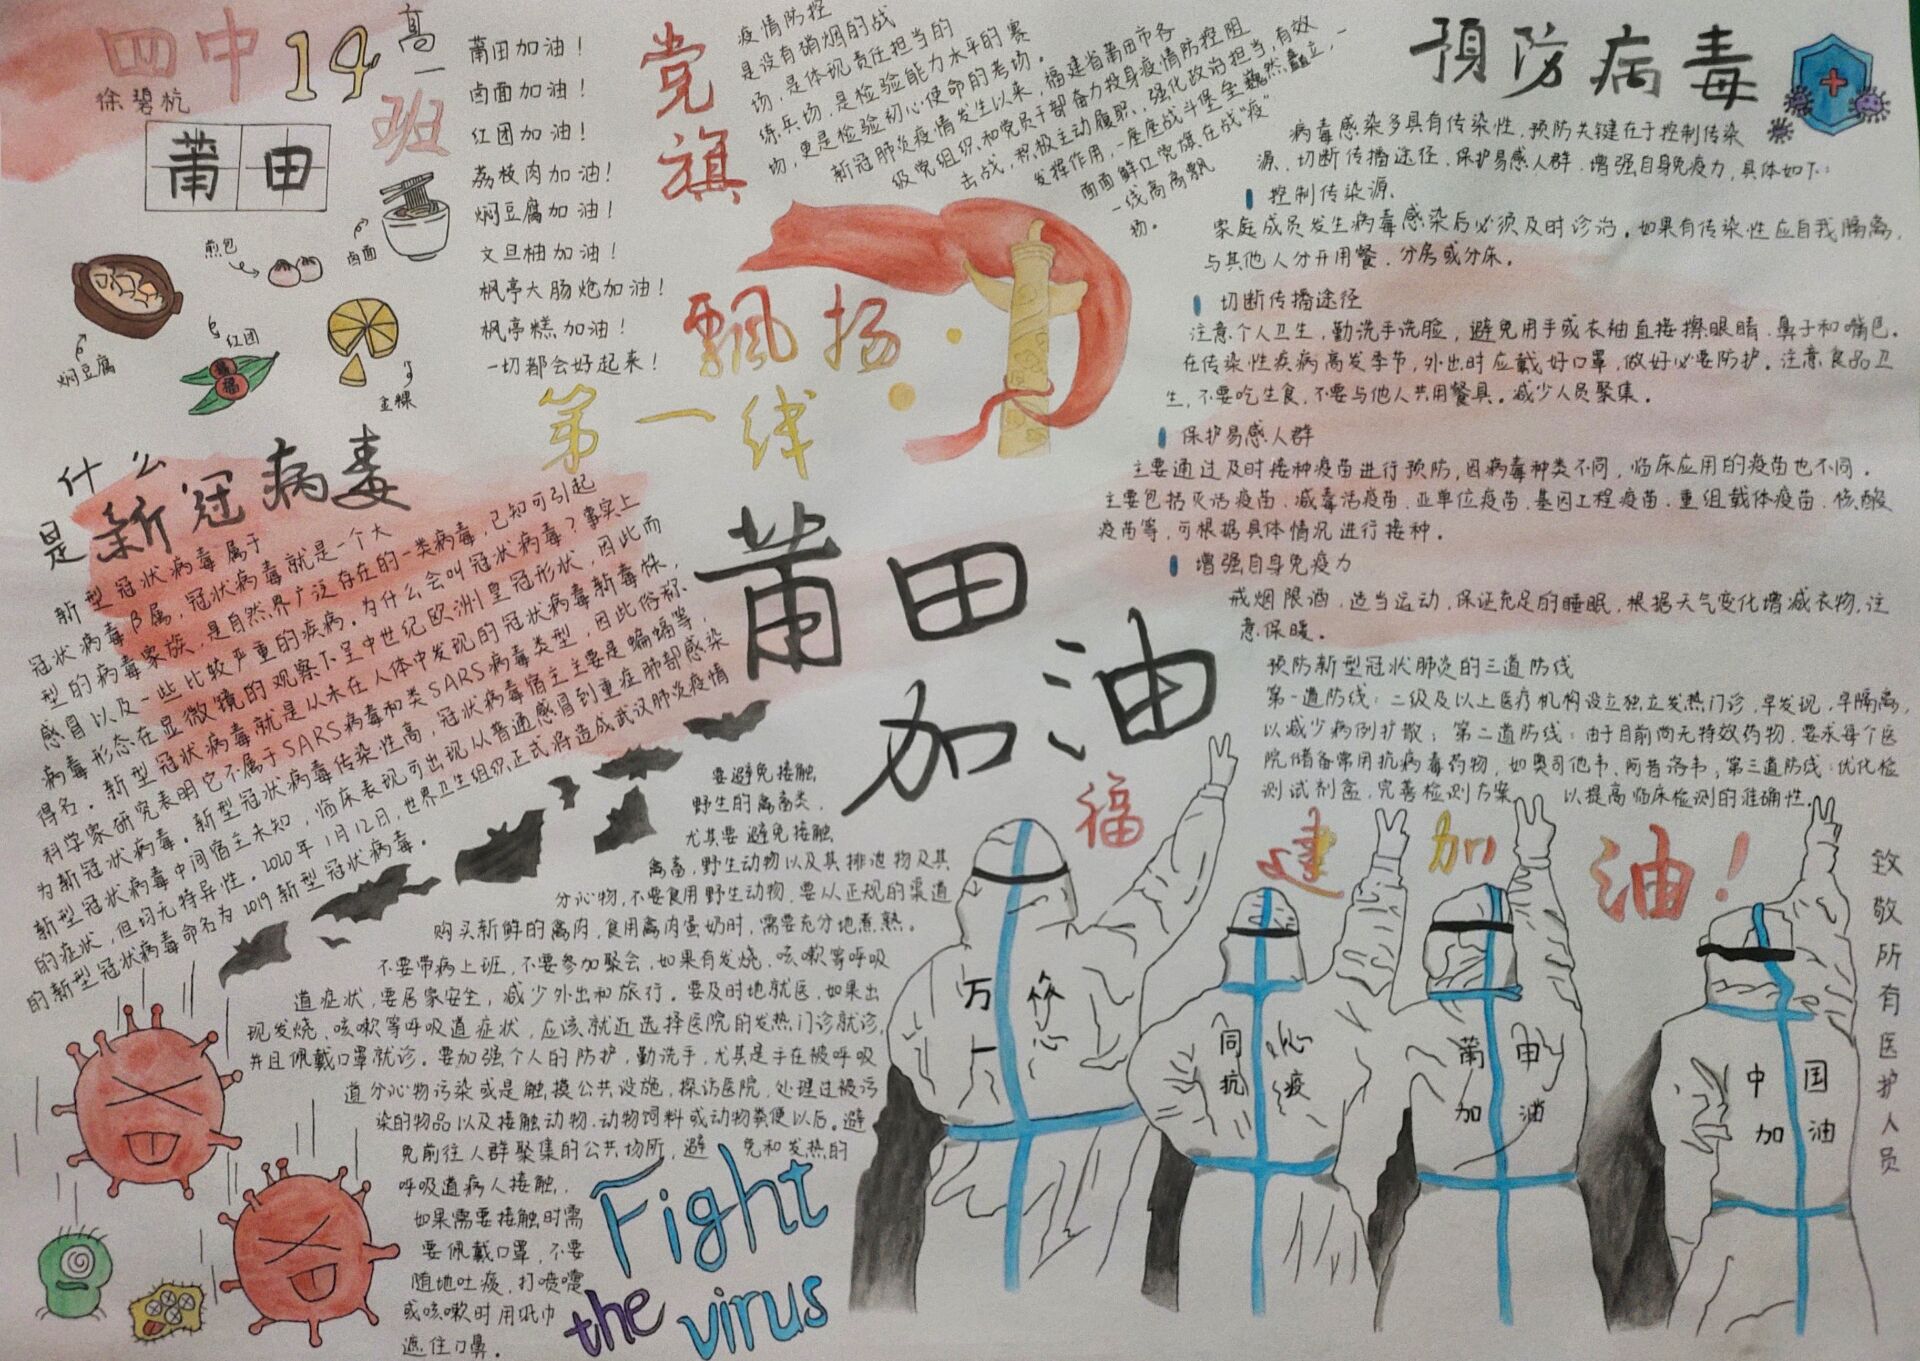 四中
14
高一班
徐碧杭
莆田
莆田加油！
卤面加油！
红团加油！
荔枝肉加油！
焖豆腐加油！
文旦柚加油！
枫亭大肠炝加油！
枫亭糕加油！
一切都会好起来！
煎包
卤面
焖豆腐
红团
福
金粿
党旗
飘扬
第一线
疫情防控
是没有硝烟的战
场，是体现责任担当的
练兵场，是检验能力水平的赛
场，更是检验初心使命的考场。
新冠肺炎疫情发生以来，福建省莆田市各
级党组织和党员干部奋力投身疫情防控阻
击战，积极主动履职，强化政治担当，有效
发挥作用，一座座战斗堡垒巍然矗立，一
面面鲜红党旗在战“疫”
一线高高飘
扬。
预防病毒
病毒感染多具有传染性，预防关键在于控制传染
源、切断传播途径，保护易感人群、增强自身免疫力，具体如下：
控制传染源
家庭成员发生病毒感染后必须及时诊治。如果有传染性应自我隔离，
与其他人分开用餐、分房或分床。
切断传播途径
注意个人卫生，勤洗手洗脸，避免用手或衣袖直接擦眼睛、鼻子和嘴巴。
在传染性疾病高发季节，外出时应戴好口罩，做好必要防护。注意食品卫
生，不要吃生食，不要与他人共用餐具。减少人员聚集。
保护易感人群
主要通过及时接种疫苗进行预防，因病毒种类不同，临床应用的疫苗也不同。
主要包括灭活疫苗、减毒活疫苗、亚单位疫苗、基因工程疫苗、重组载体疫苗、核酸
疫苗等，可根据具体情况进行接种。
增强自身免疫力
戒烟限酒，适当运动，保证充足的睡眠，根据天气变化增减衣物，注
意保暖。
预防新型冠状肺炎的三道防线
第一道防线：二级及以上医疗机构设立独立发热门诊，早发现，早隔离，
以减少病例扩散；第二道防线：由于目前尚无特效药物，要求每个医
院储备常用抗病毒药物，如奥司他韦、阿昔洛韦；第三道防线：优化检
测试剂盒，完善检测方案 以提高临床检测的准确性。
什么
是新冠病毒
新型冠状病毒属于
冠状病毒β属，冠状病毒就是一个大
型的病毒家族，是自然界广泛存在的一类病毒，已知可引起
感冒以及一些比较严重的疾病。为什么会叫冠状病毒？事实上
病毒形态在显微镜的观察下呈中世纪欧洲皇冠形状，因此而
得名。新型冠状病毒就是以前从未在人体中发现的冠状病毒新毒株，
科学家研究表明它不属于SARS病毒和类SARS病毒类型，因此俗称
为新冠状病毒。新型冠状病毒传染性高，冠状病毒宿主主要是蝙蝠等，
新型冠状病毒中间宿主未知，临床表现可出现从普通感冒到重症肺部感染
的症状，但均无特异性。2020年1月12日，世界卫生组织正式将造成武汉肺炎疫情
的新型冠状病毒命名为2019新型冠状病毒。
莆田
加油
要避免接触
野生的禽畜类，
尤其要避免接触
禽畜，野生动物以及其排泄物及其
分沁物，不要食用野生动物，要从正规的渠道
购买新鲜的禽肉，食用禽肉蛋奶时，需要充分地煮熟。
不要带病上班，不要参加聚会，如果有发烧、咳嗽等呼吸
道症状，要居家安全，减少外出和旅行。要及时地就医，如果出
现发烧、咳嗽等呼吸道症状，应该就近选择医院的发热门诊就诊，
并且佩戴口罩就诊。要加强个人的防护，勤洗手，尤其是手在被呼吸
道分沁物污染或是触摸公共设施，探访医院，处理过被污
染的物品以及接触动物、动物饲料或动物粪便以后。避
免前往人群聚集的公共场所，避免和发热的
呼吸道病人接触，
如果需要接触时需
要佩戴口罩，不要
随地吐痰，打喷嚏
或咳嗽时用纸巾
遮住口鼻。
Fight
the virus
福建加油！
万众一心
同心抗疫
莆田加油
中国加油
致敬所有医护人员